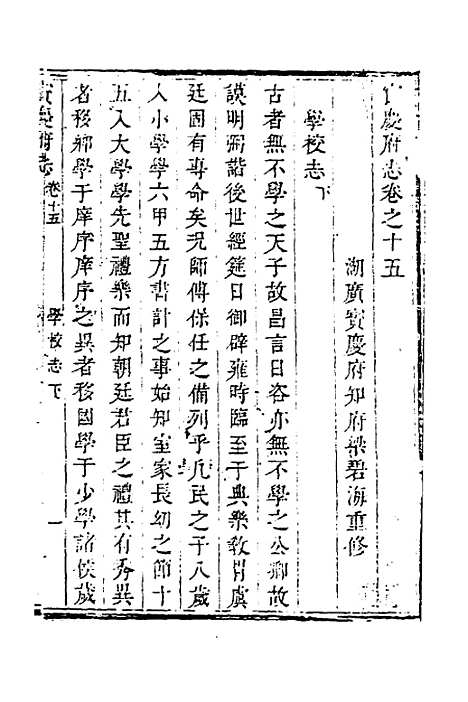 慶府志卷之十五
湖廣寶慶府知府梁碧海重修
學校志下
古者無不學之天子故昌言曰咨亦無不學之公卿故
謨明弼諧後世經筵日御辟雍時臨至于典樂敎胄虞
廷固有專命矣況師傅保任之備列乎凡民之子八歲
入小學學六甲五方書計之事始知室家長幼之節十
五入大學學先聖禮樂而知朝廷君臣之禮其有秀異
者移鄉學于庠序庠序之異者移國學于少學諸侯歲
慶府志
卷十五
學校志下
一